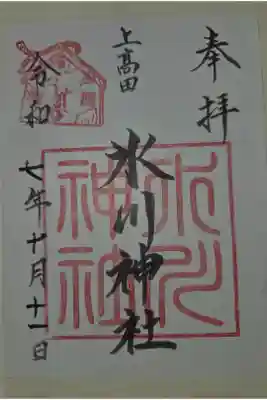 奉拝
上高田
氷川神社
氷川神社
令和七年十月十一日